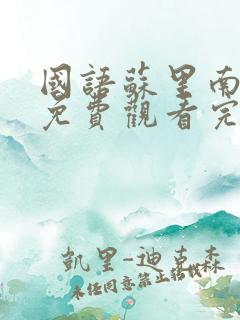 國語蘇里南
免費觀看完
凱里-迪克森
未經同意禁止轉載